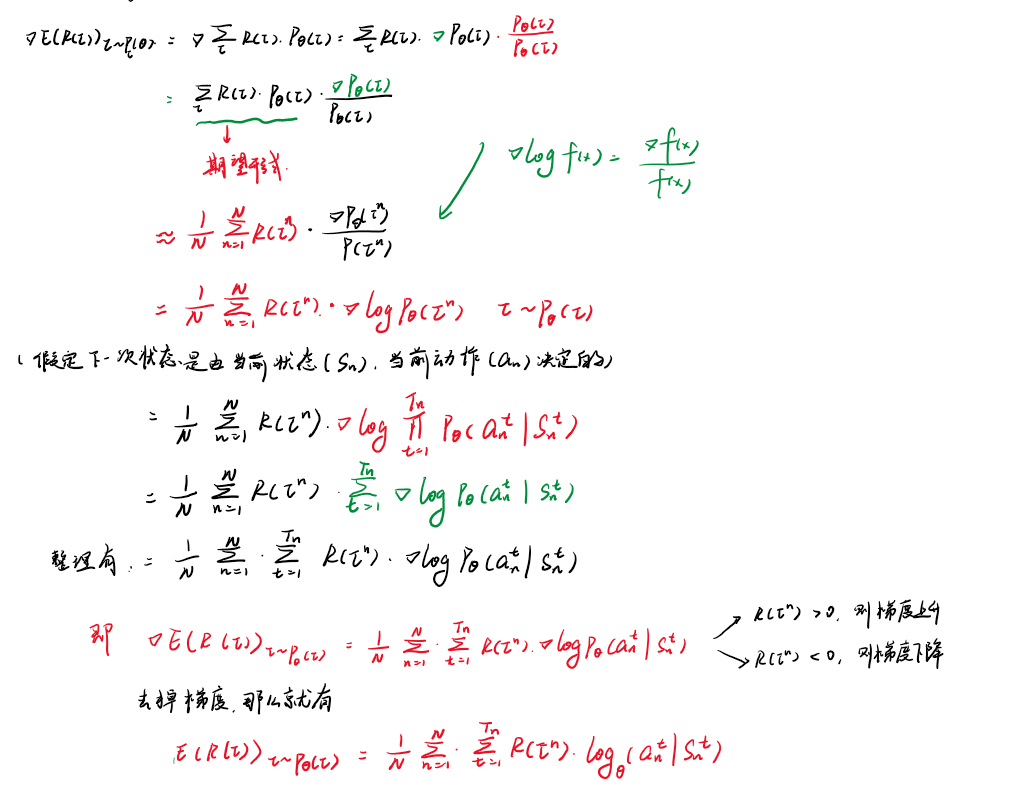 ∇E(R(τ))_{τ~P_θ(τ)} = ∇ Σ_τ R(τ)·P_θ(τ) = Σ_τ R(τ)·∇P_θ(τ)·P_θ(τ)/P_θ(τ)
= Σ_τ R(τ)·P_θ(τ)·∇P_θ(τ)/P_θ(τ)
期望形式
∇log f(x) = ∇f(x)/f(x)
≈ 1/N Σ_{n=1}^{N} R(τ^n)·∇P_θ(τ^n)/P(τ^n)
= 1/N Σ_{n=1}^{N} R(τ^n)·∇log P_θ(τ^n) τ~P_θ(τ)
(假定下一次状态是由当前状态(S_n),当前动作(a_n)决定的)
= 1/N Σ_{n=1}^{N} R(τ^n)·∇log ∏_{t=1}^{T_n} P_θ(a_n^t|S_n^t)
= 1/N Σ_{n=1}^{N} R(τ^n)·Σ_{t=1}^{T_n} ∇log P_θ(a_n^t|S_n^t)
整理有. = 1/N Σ_{n=1}^{N}·Σ_{t=1}^{T_n} R(τ^n)·∇log P_θ(a_n^t|S_n^t)
即 ∇E(R(τ))_{τ~P_θ(τ)} = 1/N Σ_{n=1}^{N}·Σ_{t=1}^{T_n} R(τ^n)·∇log P_θ(a_n^t|S_n^t)
R(τ^n)>0, 则梯度上升
R(τ^n)<0, 则梯度下降
去掉梯度,那么就有
E(R(τ))_{τ~P_θ(τ)} = 1/N Σ_{n=1}^{N}·Σ_{t=1}^{T_n} R(τ^n)·log_θ(a_n^t|S_n^t)